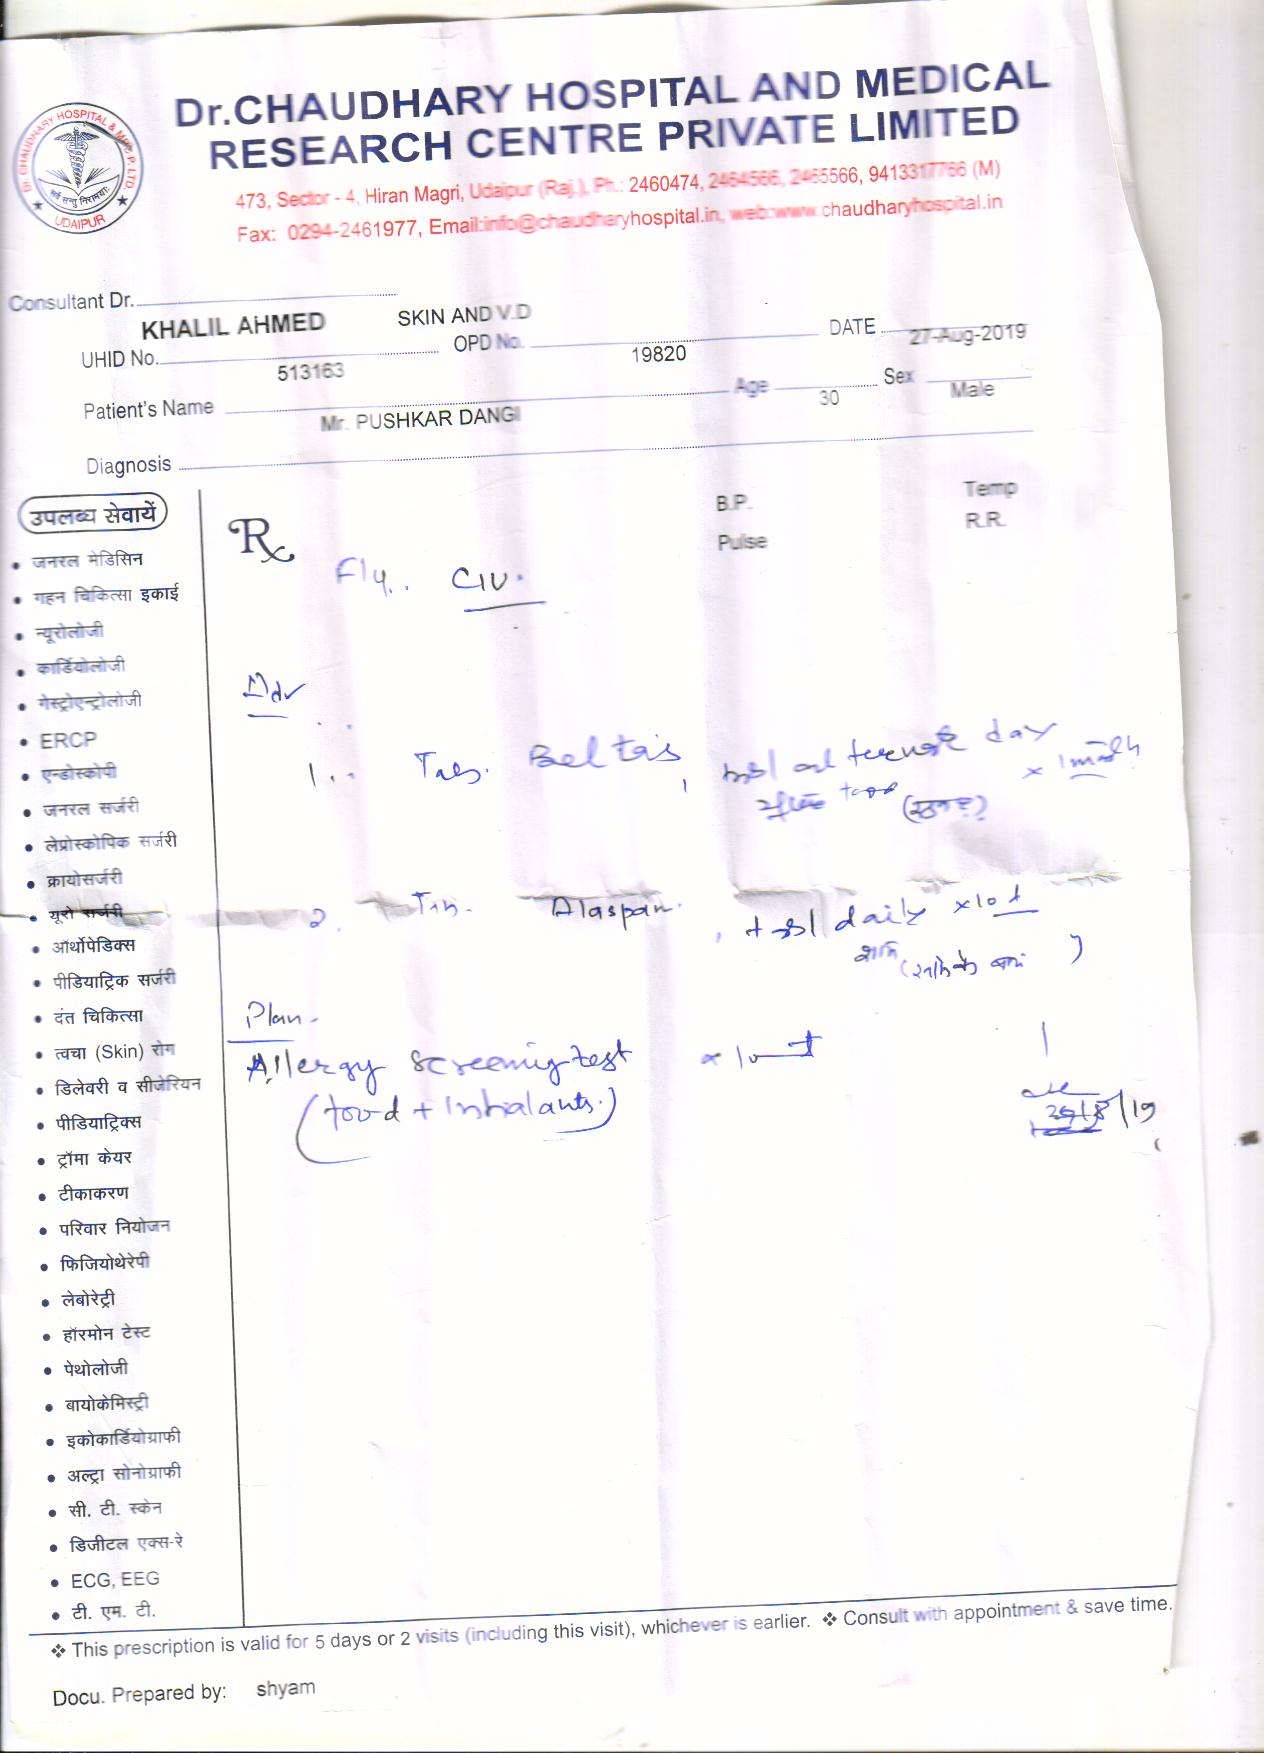 Dr.CHAUDHARY HOSPITAL AND MEDICAL
RESEARCH CENTRE PRIVATE LIMITED
473, Sector - 4, Hiran Magri, Udaipur (Raj.), Ph.: 2460474, 2464566, 2465566, 9413317766 (M)
Fax: 0294-2461977, Email:info@chaudharyhospital.in, web:www.chaudharyhospital.in
Dr. CHAUDHARY HOSPITAL & MRC P. LTD
सर्वे सन्तु निरामयाः
UDAIPUR
Consultant Dr.
KHALIL AHMED SKIN AND V.D
UHID No. 513163 OPD No. 19820 DATE 27-Aug-2019
Patient's Name Mr. PUSHKAR DANGI Age 30 Sex Male
Diagnosis
उपलब्ध सेवायें
• जनरल मेडिसिन
• गहन चिकित्सा इकाई
• न्यूरोलोजी
• कार्डियोलोजी
• गेस्ट्रोएन्ट्रोलोजी
• ERCP
• एन्डोस्कोपी
• जनरल सर्जरी
• लेप्रोस्कोपिक सर्जरी
• क्रायोसर्जरी
• यूरो सर्जरी
• ऑर्थोपेडिक्स
• पीडियाट्रिक सर्जरी
• दंत चिकित्सा
• त्वचा (Skin) रोग
• डिलेवरी व सीजेरियन
• पीडियाट्रिक्स
• ट्रॉमा केयर
• टीकाकरण
• परिवार नियोजन
• फिजियोथेरेपी
• लेबोरेट्री
• हॉरमोन टेस्ट
• पेथोलोजी
• बायोकेमिस्ट्री
• इकोकार्डियोग्राफी
• अल्ट्रा सोनोग्राफी
• सी. टी. स्केन
• डिजीटल एक्स-रे
• ECG, EEG
• टी. एम. टी.
Rx
B.P. Temp
Pulse R.R.
CIU.
Adv
1.. Tab. Beltas, alternate day x 1 month
after food
2. Tab. Alaspan. daily x10d
Plan-
Allergy screening test
(food + Inhalants.)
❖ This prescription is valid for 5 days or 2 visits (including this visit), whichever is earlier. ❖ Consult with appointment & save time.
Docu. Prepared by: shyam